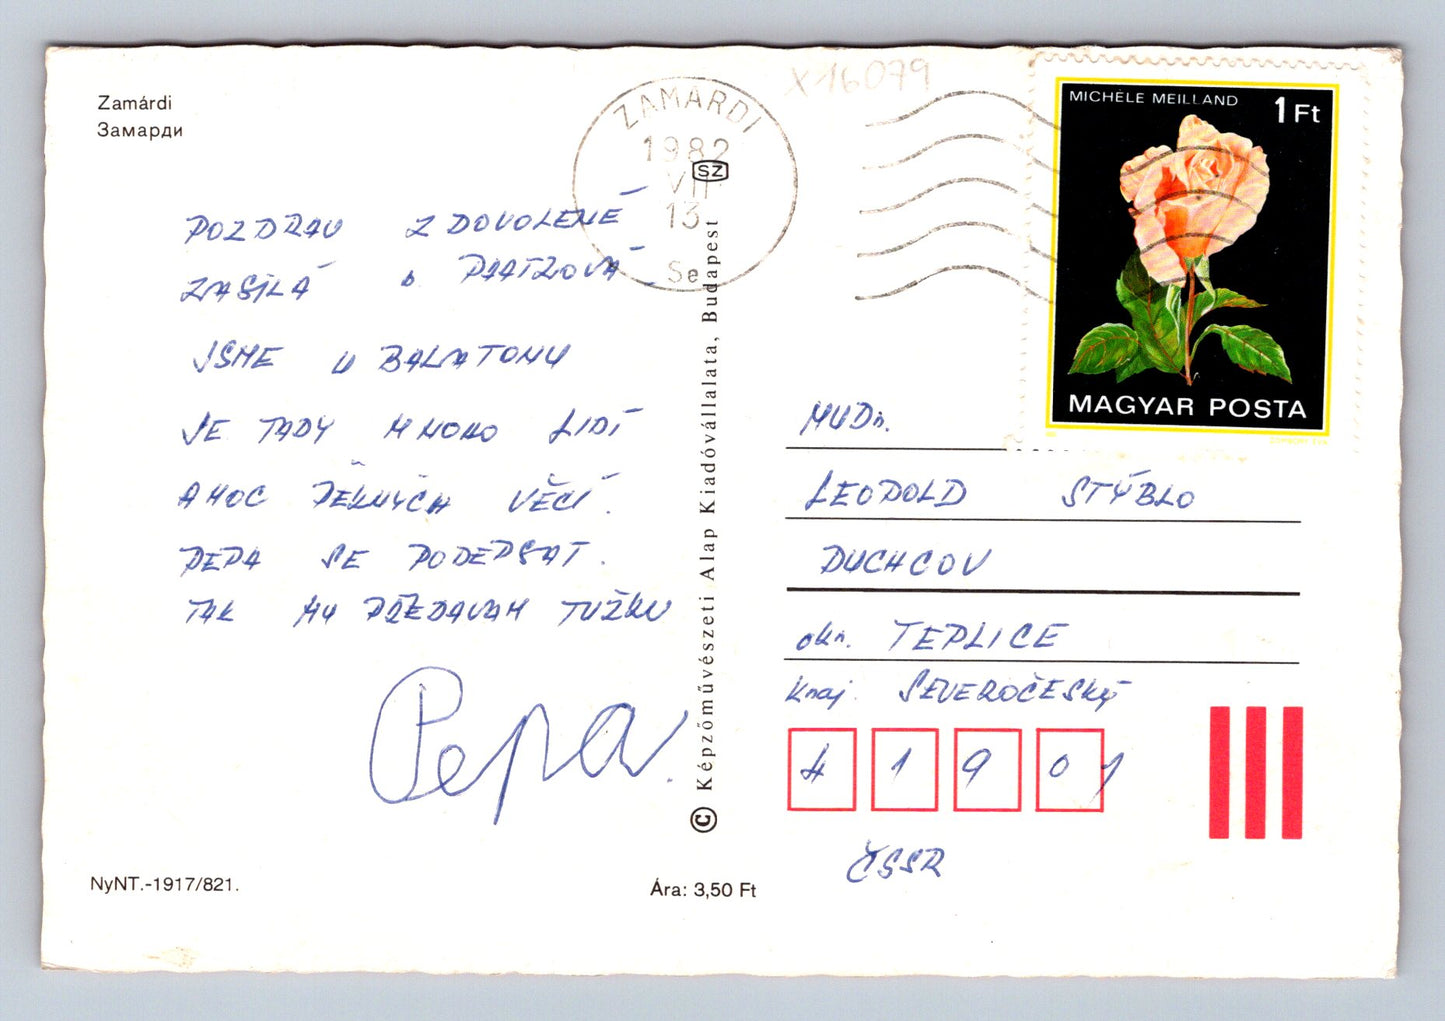 Zamárdi
Замарди
X16079
ZAMÁRDI
1982
VII
13
Se
SZ
MICHÈLE MEILLAND 1 Ft
MAGYAR POSTA
POZDRAV Z DOVOLENÉ
ZASÍLÁ
JSME U BALATONU
JE TADY MNOHO LIDÍ
A MOC PĚKNÝCH VĚCÍ.
PEPA SE PODEPSAT.
TAK MU PŘEDÁVAM TUŽKU
Pepa.
© Képzőművészeti Alap Kiadóvállalata, Budapest
MUDr.
LEOPOLD STÝBLO
DUCHCOV
okr. TEPLICE
Kraj. SEVEROČESKÝ
4 1 9 0 1
ČSSR
NyNT.-1917/821.
Ára: 3,50 Ft